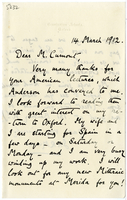 14 March 1912.
Dear M. Cumont,
Very many thanks for
your American lectures, which
Anderson has conveyed to me.
I look forward to reading them
with great interest on my re-
-turn to Oxford. My wife and
I are starting for Spain in a
few days – on Saturday
Monday – and I am very busy
winding up my work. I will
look out for any new Mithraic
monuments at Merida for you!